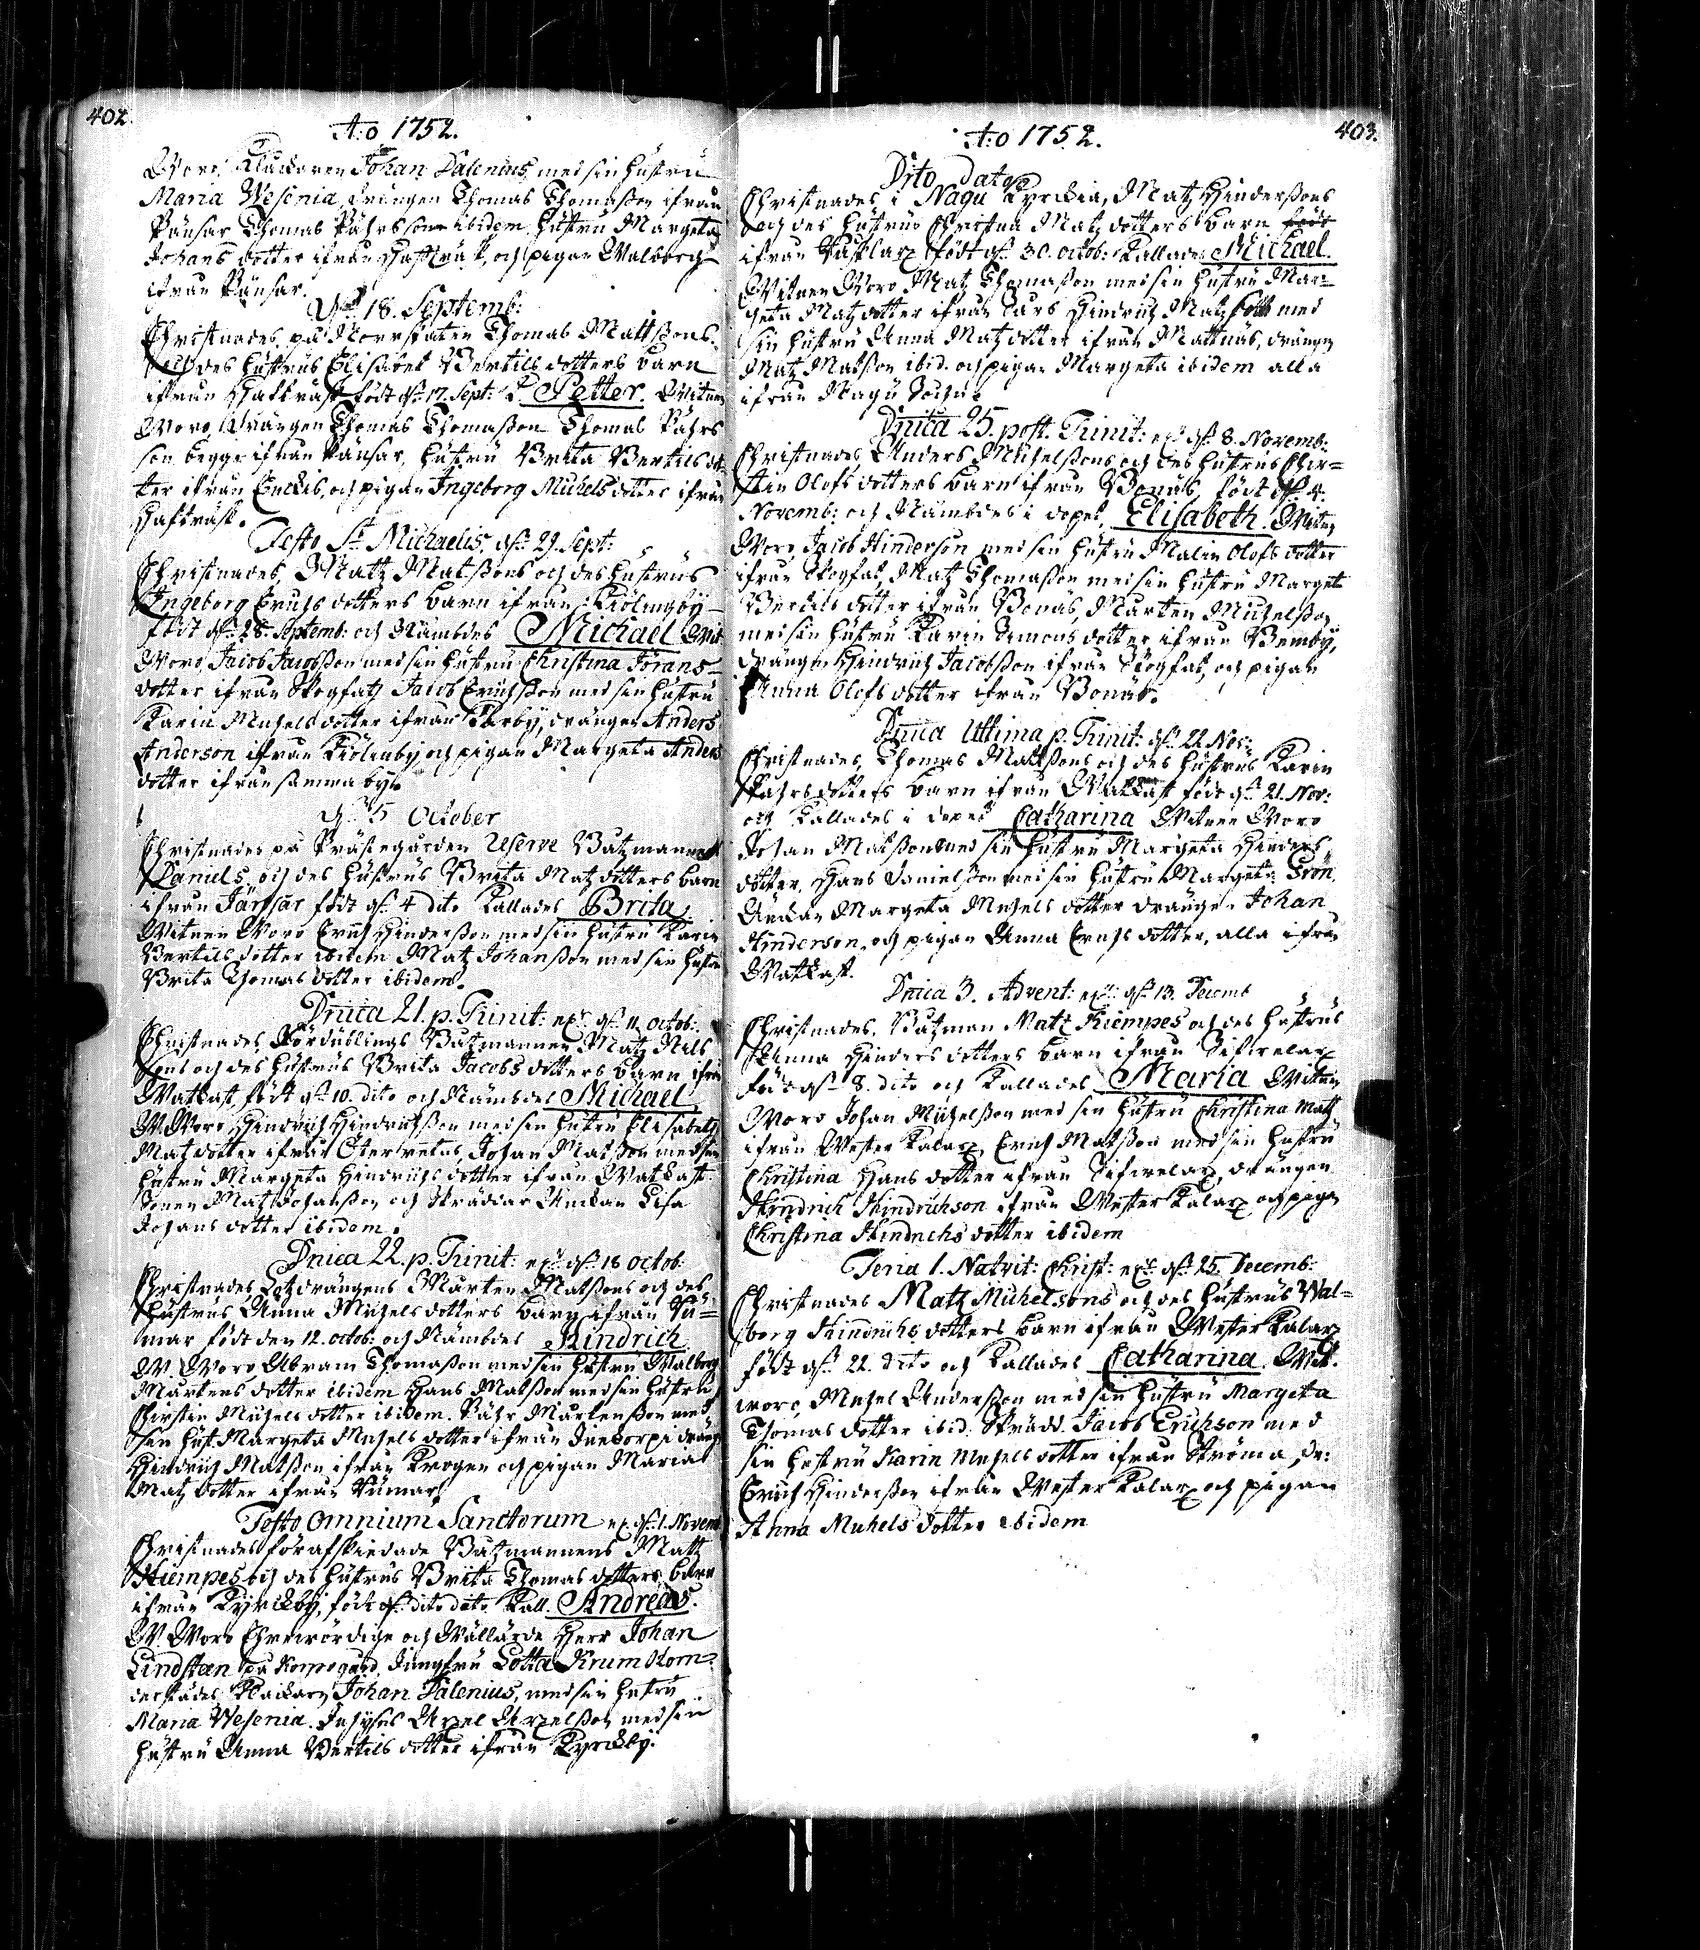 402.
A:o 1752.
Woro, Klåckaren Johan Dalenius, med sin hustru
Maria Wesenia, drängen Thomas Thomasson ifrån
Pänsar Thomas Påhrsson ibidem, hustru Margeta
Johans dotter ifrån Hafträsk, och pigan Walborg
ifrån Pänsar.
d. 18. Septemb:
Christnades, på Norrskaten Thomas Mattssons,
och des hustrus Elisabet Bertils dotters barn
ifrån Hafträsk födt d. 17. Sept: Petter. Witnen
Woro, drängen Thomas Thomasson Thomas Påhrs
son begge ifrån Pänsar, hustru Brita Bertils dot-
ter ifrån, och pigan Ingeborg Michels dotter ifrån
Hafträsk.
Festo St. Michaelis. d. 29. Sept:
Christnades, Matz Matssons och des hustrus
Ingeborg Erichs dotters barn ifrån Kiölingby
födt d. 28. Septemb: och Nämdes Michael. Wit
Woro, Jacob Jacobsson med sin hustru Christina Jörans
dotter ifrån Skogfatz Jacob Erichsson med sin hustru
Karin Michels dotter ifrån Korby, drängen Anders
Anderson ifrån Kiölinby och pigan Margeta Anders
dotter ifrån samma by.
d. 5 October
Christnades på Prästegården Reserve Båtzmannen
Daniels, och des hustrus Brita Matz dotters barn
ifrån Järfsar födt d. 4 dito Kallades Brita.
Witnen Woro Erich Hindersson med sin hustru Karin
Bertils dotter ibidem Matz Johansson med sin hustru
Brita Thomas dotter ibidem.
Dnica 21. p. Trinit: d. 11. octob:
Christnades Fördublings Båtzmannen Matz Nils
sons och des hustrus Brita Jacobs dotters barn ifrån
Wattkast, födt d. 10. dito och Nämdes Michael.
W. Woro Hindrich Hindrichsson med sin hustru Elisabeth
Matz dotter ifrån Österretas, Johan Matsson med sin
hustru Margeta Hindrichs dotter ifrån Wattkast.
Sonen Matz Johansson och Skräddar Änckan Lisa
Johans dotter ibidem.
Dnica 22. p. Trinit: d. 18 octob:
Christnades Lotzdrängens Mårten Matssons och des
hustrus Anna Michels dotters barn ifrån Ru-
mar födt den 12. octob: och Nämdes Hindrich
W. Woro, Abram Thomasson med sin hustru Walborg
Mårtens dotter ibidem Hans Matsson med sin hustru
Christin Michels dotter ibidem. Påhr Mårtensson med
sin hust. Margeta Michels dotter ifrån dräng
Hindrich Matsson ifrån Krogen och pigan Maria
Matz dotter ifrån Rumar.
Festo Omnium Sanctorum d. 1. Novem
Christnades förafskiedade Båtzmannens Matz
Kiempes och des hustrus Brita Thomas dotters barn
ifrån Kyrckby, födt d. dito dito Kall. Andreas.
W. Woro Ehrewördige och Wällärde Herr Johan
Lindstæn på Korpogård, Jungfru Lotta Krum Horn
Klåckaren Johan Dalenius, med sin hustru
Maria Wesenia. Axel Axelsson med sin
hustru Anna Bertils dotter ifrån Kyrckby.
403.
A:o 1752.
Dito Dato
Christnades i Nagu Kyrckia, Matz Hinderssons
och des hustrus Christina Matz dotters barn födt
ifrån, födt d. 30. octob: Kallades Michael.
Witnen Woro Matz Thomasson med sin hustru Mar-
geta Matz dotter ifrån Hindrich Matzson med
sin hustru Anna Matz dotter ifrån Mattnäs, drängen
Matz Matsson ibid. och pigan Margeta ibidem alla
ifrån Nagu Sochn.
Dnica 25. post. Trinit: d. 8. Novemb:
Christnades, Anders Michelssons och des hustrus Chir-
stin Olofs dotters barn ifrån Bonäs, födt d. 4.
Novemb: och Nämdes i dopet, Elisabeth. Witnen
Woro, Jacob Hinderson med sin hustru Malin Olofs dotter
ifrån Skogfat, Matz Thomasson med sin hustru Margeta
Bertils dotter ifrån Bonäs, Mårten Michelsson
med sin hustru Karin Simons dotter ifrån Benby,
drängen Hindrich Jacobsson ifrån Skogfat, och pigan
Anna Olofs dotter ifrån Bonäs.
Dnica Ultima p. Trinit: d. 22. Nov:
Christnades, Thomas Mattssons och des hustrus Karin
Påhrs dotters barn ifrån Wattkast födt d. 21. Nov:
och Kallades i dopet Catharina Witnen Woro
Johan Matsson med sin hustru Margeta Hinders
dotter, Hans Danielsson med sin hustru Margeta
Änckan Margeta Michels dotter drängen Johan
Hinderson, och pigan Anna Erichs dotter, alla ifrån
Wattkast.
Dnica 3. Advent: d. 13. Decemb
Christnades, Båtzman Matz Kiempes och des hustrus
Anna Hinders dotters barn ifrån Siftvelax
födt d. 8. dito och Kallades Maria Witnen
Woro Johan Michelsson med sin hustru Christina Matz
ifrån Wester Kalax, Erich Matsson med sin hustru
Christina Hans dotter ifrån Siftvelax, drängen
Hindrich Hindrichson ifrån Wester Kalax och pigan
Christina Hindrichs dotter ibidem
Feria 1. Nativit: Christ: d. 25. Decemb:
Christnades Matz Michelsons och des hustrus Wal-
borg Hindrichs dotters barn ifrån Wester Kalax
födt d. 22. dito och Kallades Catharina. Wit.
woro, Michel Andersson med sin hustru Margeta
Thomas dotter ibid. Skrädd. Jacob Erichson med
sin hustru Karin Michels dotter ifrån Ströma, dr:
Erich Hindersson ifrån Wester Kalax och pigan
Anna Michels dotter ibidem